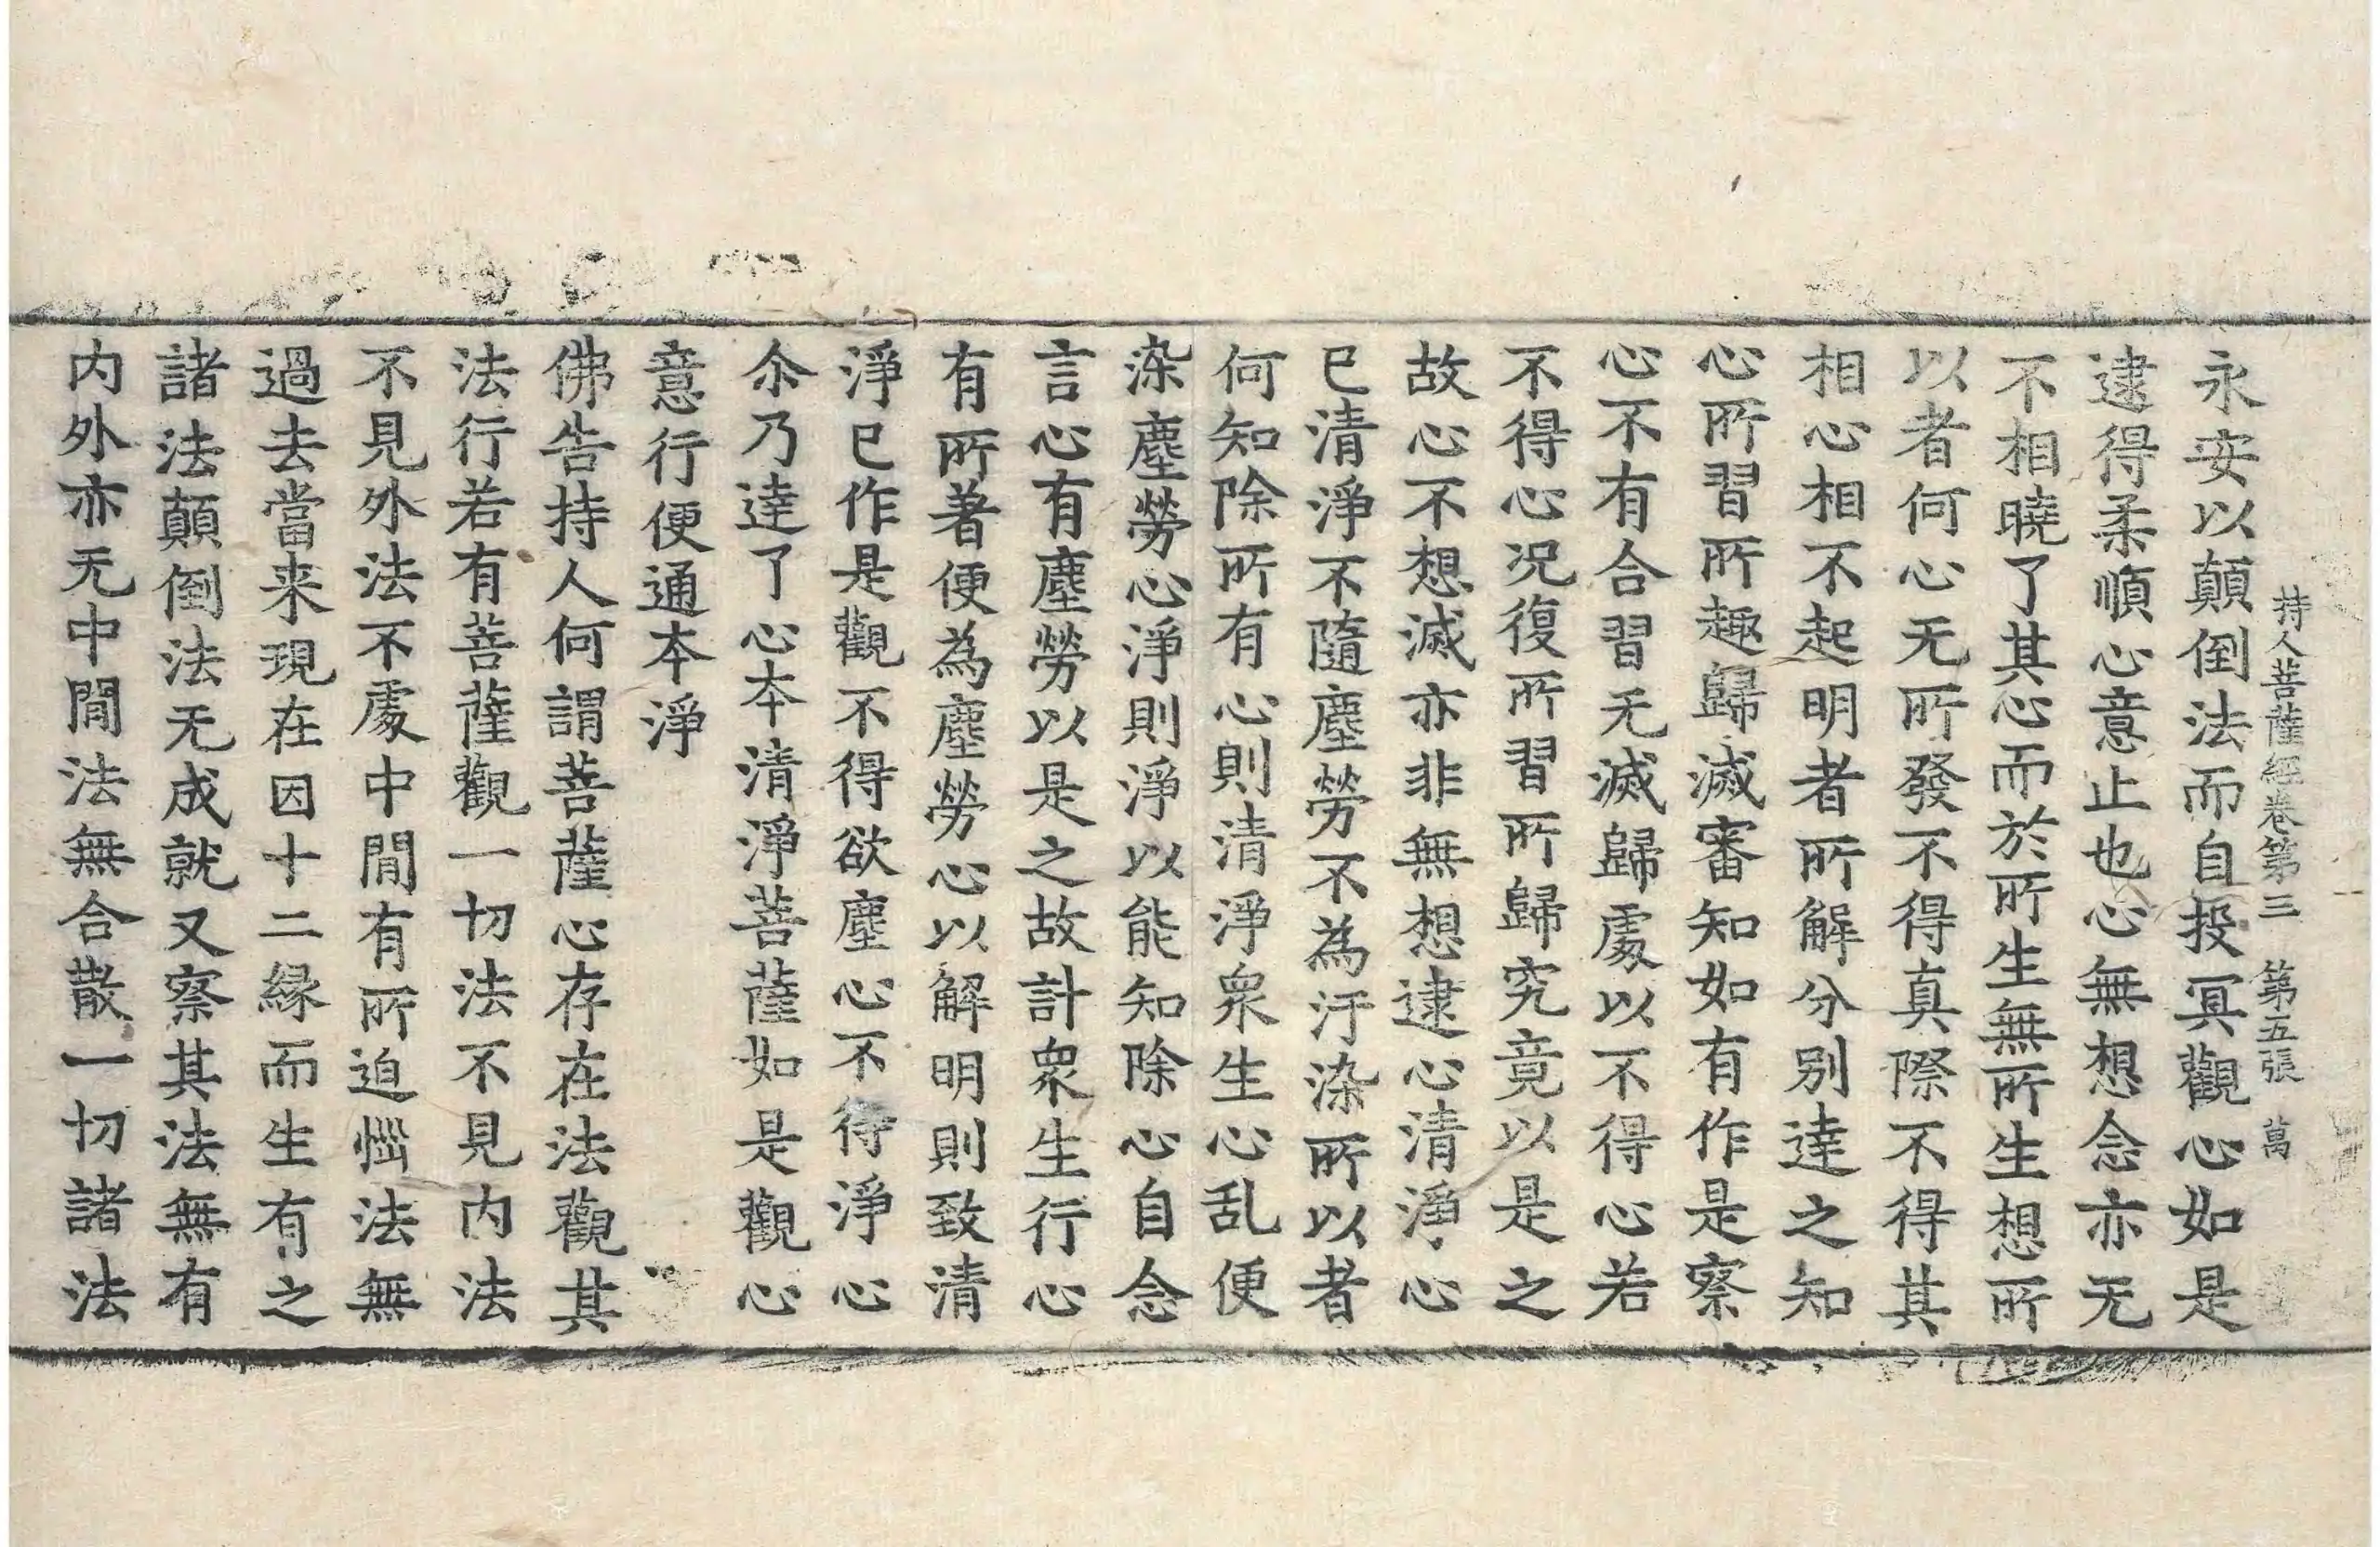 持人菩薩經卷第三 第五張 萬
永安以顛倒法而自投冥觀心如是
逮得柔順心意止也心無想念亦无
不相曉了其心而於所生無所生想所
以者何心无所發不得真際不得其
相心相不起明者所解分別達之知
心所習所趣歸滅審知如有作是察
心不有合習无滅歸處以不得心若
不得心况復所習所歸究竟以是之
故心不想滅亦非無想逮心清淨心
已清淨不隨塵勞不為汙染所以者
何知除所有心則清淨衆生心乱便
染塵勞心淨則淨以能知除心自念
言心有塵勞以是之故計衆生行心
有所著便為塵勞心以解明則致清
淨已作是觀不得欲塵心不得淨心
尒乃達了心本清淨菩薩如是觀心
意行便通本淨
佛告持人何謂菩薩心存在法觀其
法行若有菩薩觀一切法不見内法
不見外法不處中間有所迫惱法無
過去當来現在因十二緣而生有之
諸法顛倒法无成就又察其法無有
内外亦无中間法無合散一切諸法